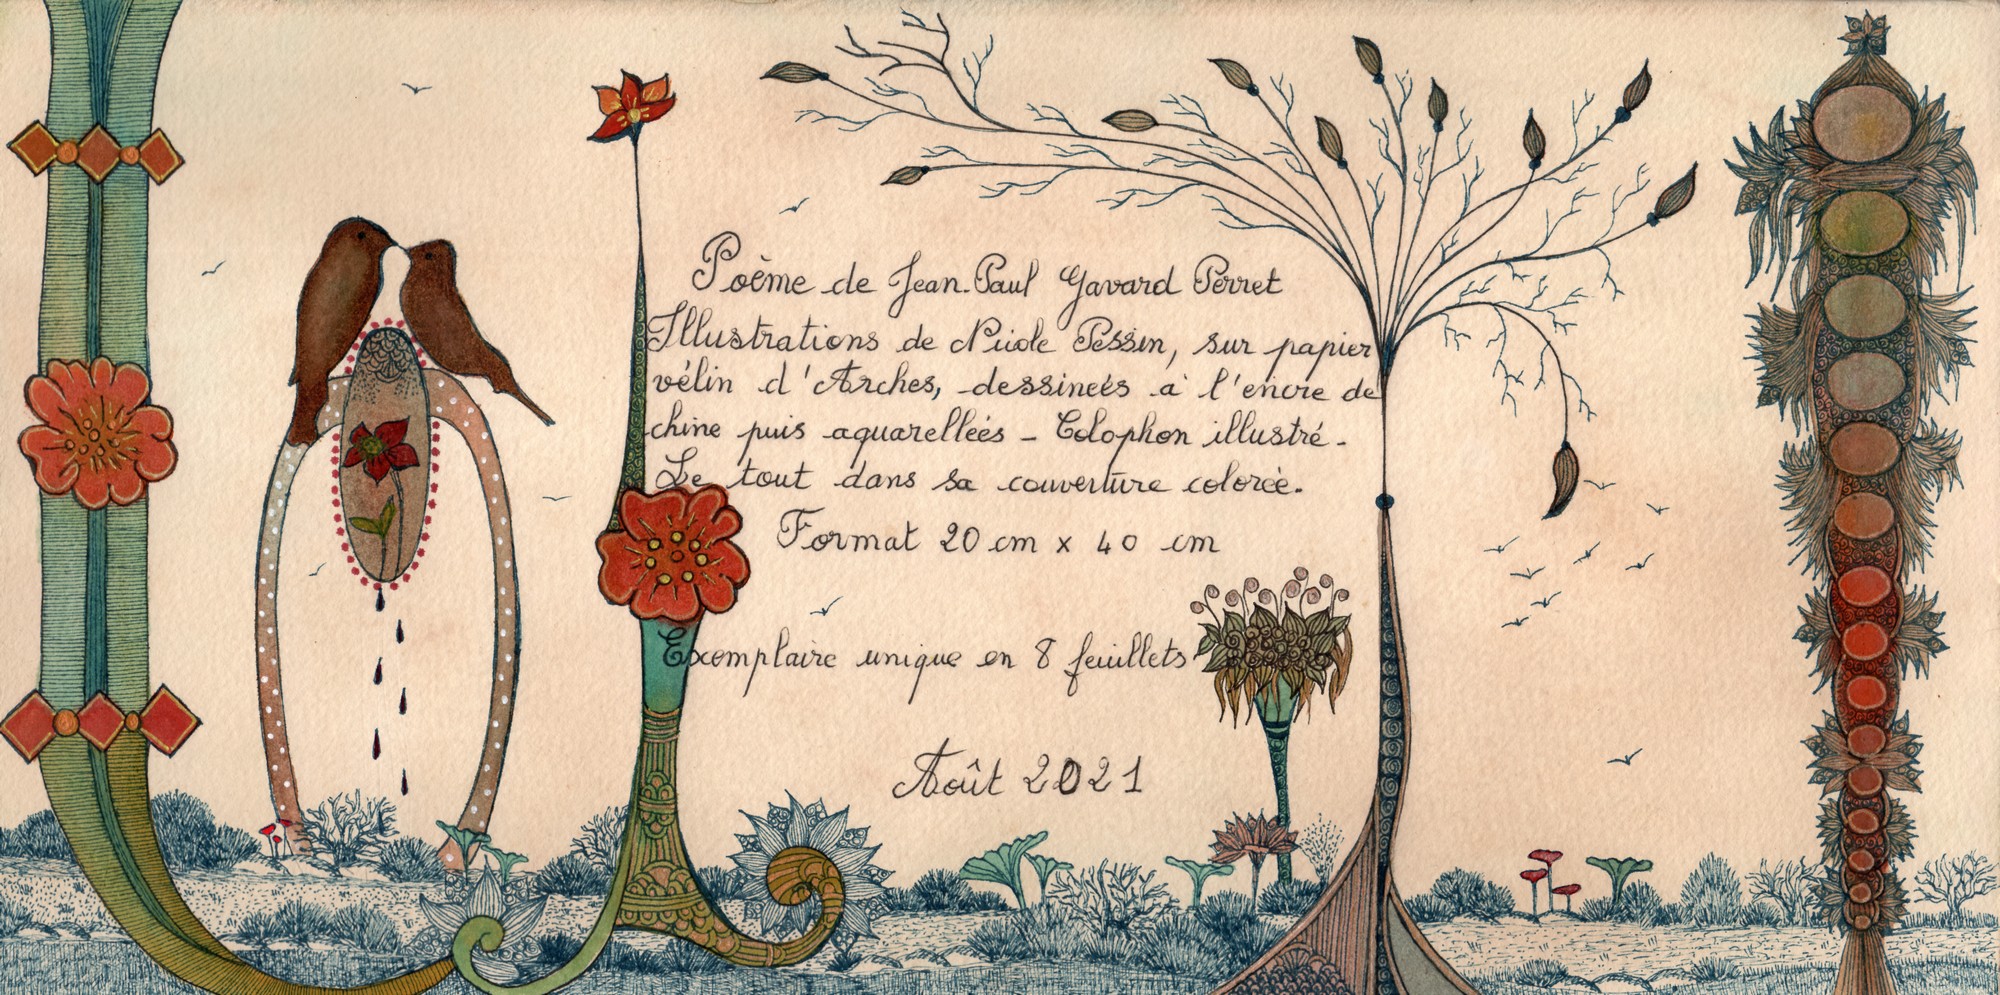 Poème de Jean-Paul Gavard Perret
Illustrations de Nicole Pessin, sur papier
vélin d'Arches, dessinées à l'encre de
chine puis aquarellées - Colophon illustré -
Le tout dans sa couverture colorée.
Format 20 cm x 40 cm
Exemplaire unique en 8 feuillets
Août 2021